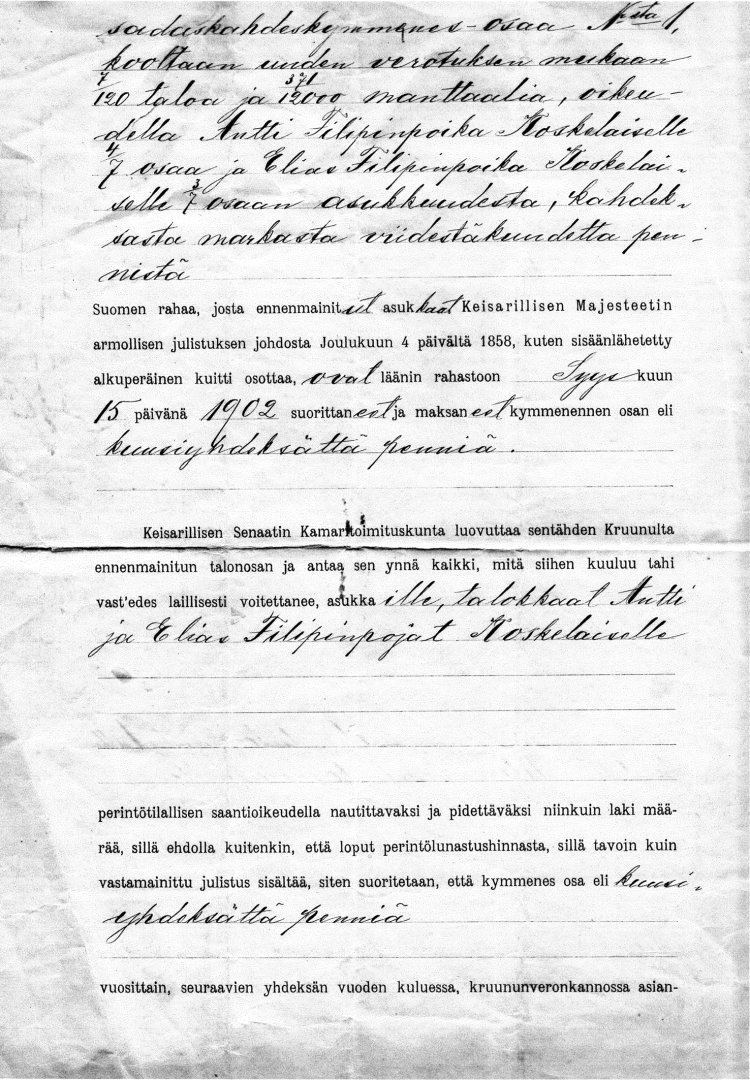 sadaskahdeskymmenes-osaa N:sta 1,
kooltaan uuden verotuksen mukaan
7/120 taloa ja 371/12000 manttaalia, oikeu-
della Antti Filipinpoika Koskelaiselle
4/7 osaa ja Elias Filipinpoika Koskelai-
selle 3/7 osaan asukkuudesta, kahdek-
sasta markasta viidestäkuudetta pen-
nistä
Suomen rahaa, josta ennenmainitut asukkaat Keisarillisen Majesteetin
armollisen julistuksen johdosta Joulukuun 4 päivältä 1858, kuten sisäänlähetetty
alkuperäinen kuitti osottaa, ovat läänin rahastoon Syys kuun
15 päivänä 1902 suorittaneet ja maksaneet kymmenennen osan eli
kuusiyhdeksättä penniä.
Keisarillisen Senaatin Kamaritoimituskunta luovuttaa sentähden Kruunulta
ennenmainitun talonosan ja antaa sen ynnä kaikki, mitä siihen kuuluu tahi
vast'edes laillisesti voitettanee, asukkaille, talokkaat Antti
ja Elias Filipinpojat Koskelaiselle
perintötilallisen saantioikeudella nautittavaksi ja pidettäväksi niinkuin laki mää-
rää, sillä ehdolla kuitenkin, että loput perintölunastushinnasta, sillä tavoin kuin
vastamainittu julistus sisältää, siten suoritetaan, että kymmenes osa eli kuusi-
yhdeksättä penniä
vuosittain, seuraavien yhdeksän vuoden kuluessa, kruununveronkannossa asian-